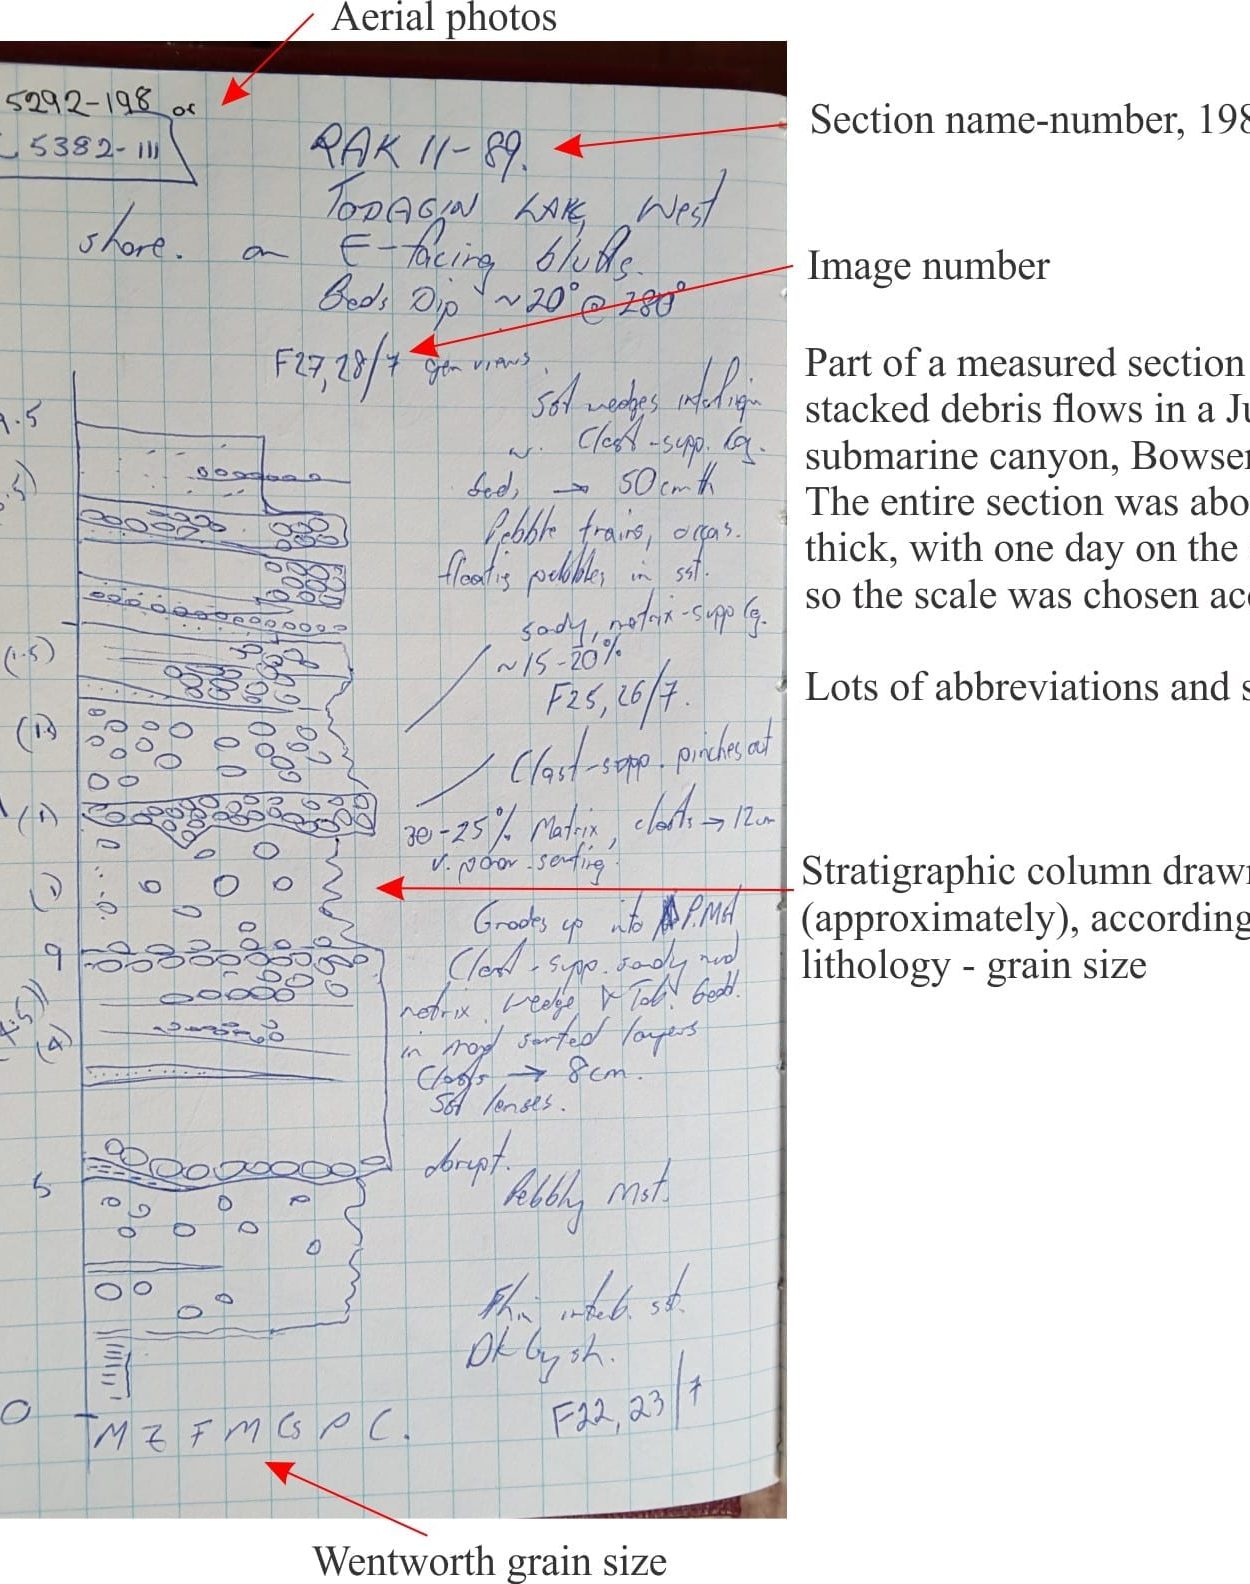 Aerial photos
5292-198 or
5382-111
RAK 11-89.
Section name-number, 198
TODAGIN LAKE, West
shore. on E-facing bluffs.
Beds Dip ~20° @ 280°
Image number
F27,28/7 gen views.
Part of a measured section
stacked debris flows in a Ju
submarine canyon, Bowser
The entire section was abo
thick, with one day on the
so the scale was chosen acc
Lots of abbreviations and s
Sst wedges
w. Clast-supp. Cg.
beds → 50cm th
Pebble trains, occas.
floatig pebbles in sst.
sady, matrix-supp Cg.
~15-20%
F25,26/7.
(1.5)
Clast-supp. pinches out
(1)
30-25% Matrix, clasts → 12cm
v. poor sorting.
(1)
Stratigraphic column drawn
(approximately), according
lithology - grain size
Grades up into P.Mst
9
Clast-supp. sady mud
matrix. wedge & Tab. bedd.
in mod sorted layers
(4)
Clasts → 8cm.
Sst lenses.
abrupt.
5
Pebbly Mst.
Thin interb. sst.
Dk Gy sh.
F22,23/7
0
M Z F M Cs P C.
Wentworth grain size